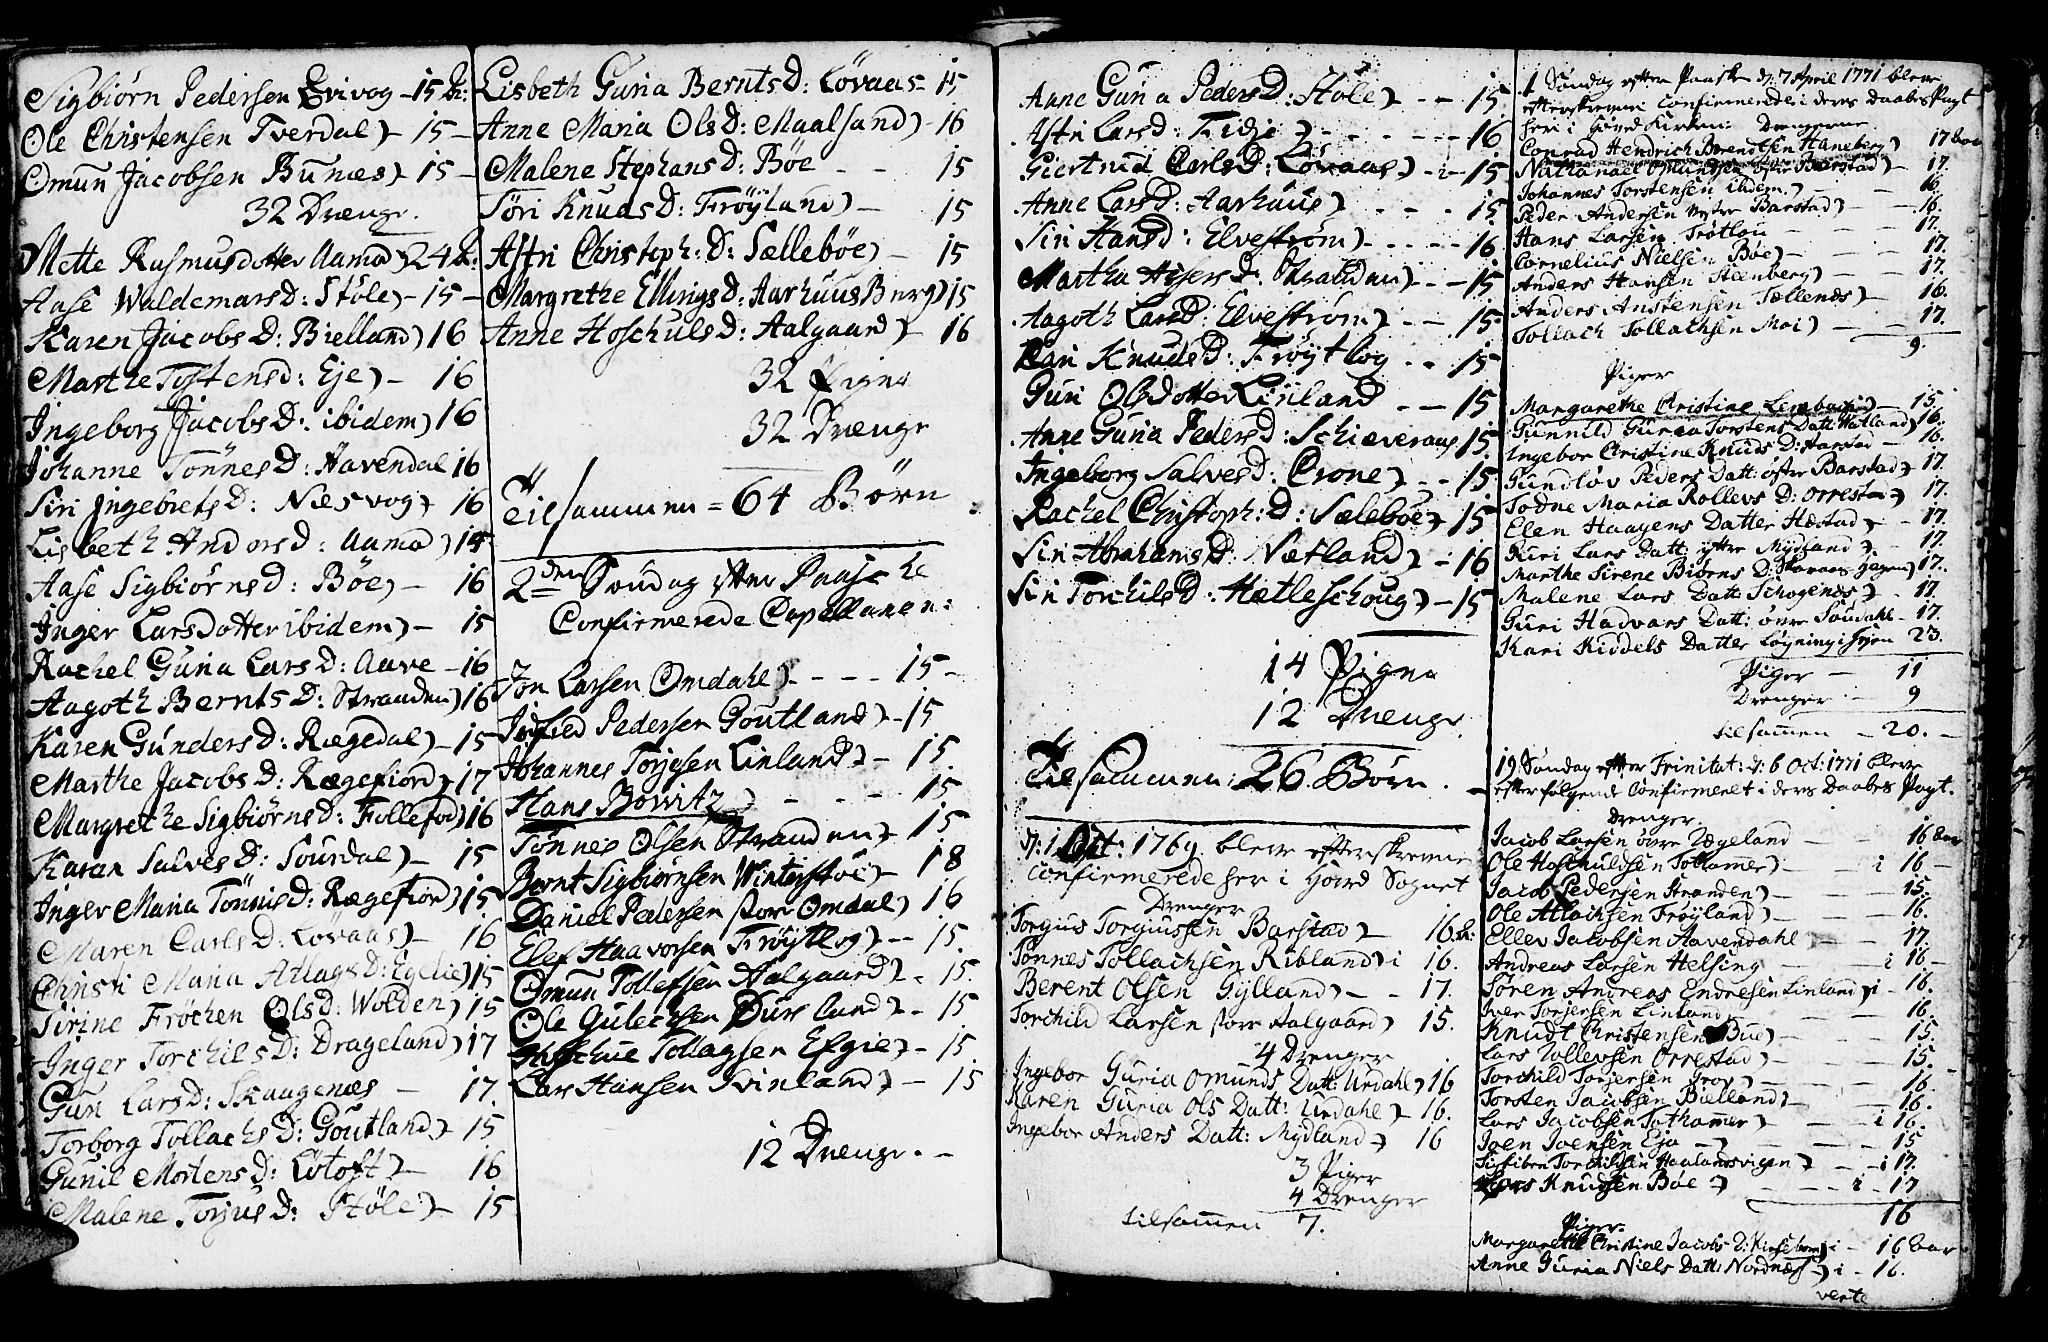 Sigbiörn Pedersen Evivog - 15 År:
Ole Christensen Tverdal) - 15 -
Omun Jacobsen Bunæs) 15 -
32 Drenge.
Mette Rasmusdotter Aamod) 24 År:
Aase Waldemars D: Støle) - 15 -
Karen Jacobs D: Bielland) 16
Marthe Tostens D: Eje) - 16
Ingeborg Jacobs D: ibidem) 16
Johanne Tönnes D: Aavendal 16
Siri Ingebrets D: Næsvog) 16
Lisbeth Anders D: Aamod) 15
Aase Sigbiörns D: Böe) - 16
Inger Larsdotter ibidem) - 15
Rachel Guria Lars D: Aave - 16
Aagoth Bernts D: Stranden) 16
Karen Gunders D: Rægedal) - 15
Marthe Jacobs D: Rægefiord) - 17
Margrethe Sigbiörns D: Follefod) 16
Karen Salves D: Sourdal) - 15
Inger Maria Tönnis D: Rægefiord) 15
Maren Carls D: Lovaas) - 16
Christi Maria Atlags D: Egelie) 15
Sirine Fröchen Ols D: Wolden) 15
Inger Torchils D: Drageland) 17
Guri Lars D: Skaagenæs - 17.
Torborg Tollachs D: Goutland) - 15
Gunil Mortens D: Lötoft) - 16
Malene Torjus D: Støle) - 15
Lisbeth Guria Bernts D: Lövaas - 15
Anne Maria Ols D: Maalsand) - 16
Malene Stephans D: Böe - - 15
Söri Knuds D: Fröyland) - 15
Astri Christoph: D: Sællebøe) - 15
Margrethe Ellings D: Aarhuus Burg) 15
Anne Hoschuls D: Aalgaard) - 16
32 Pigne
32 Drenge
Tilsammen = 64 Börn
2den Söndag efter Paasche
Confirmerede Capellanen:
Jon Larsen Omdahl) - - - - 15 -
Pedersen Goutland) - 15
Johannes Torjesen Linland) - 15.
Hans Bowitz) - - - - 15
Tönnes Olsen Stranden) - 15
Bernt Sigbiörnsen Winterstöe) - 18
Daniel Pedersen store Omdal) 16
Elef Haavorsen Fröytlog) - - 15.
Omun Tollefsen Aalgaard) - 15.
Ole Gulechsen Dursland) - 15
Tollagsen Efgie) - 15.
Lars Hansen Qvinland) - 15
12 Drenge. -
Anne Guria Peders D: Støle) - - 15
Astri Lars D: Fidje) - - - - 16
Giertrud Carls D: Lövaas) - - 15
Anne Lars D: Aarhuus) - - - 15
Siri Hans D: Elveström) - - - - - 16
Martha Asers D: Stranden) - - 15
Aagoth Lars D: Elveström) - - 15
Kari Knuds D: Fröytlog - - 15
Guri Olsdotter Linland - - 15
Anne Guria Peders D: Schieveraas 15.
Ingeborg Salves D: Crone) - - 15
Rachel Christoph: D: Sælebøe) 15
Siri Abrahams D: Nætland) - 16
Siri Torchils D: Hætleschoug) - 15
14 Pigne
12 Drenge.
Tilsammen: 26 Börn. -
d: 1 Oct: 1769 bleve efterskrevne
Confirmerede her i Hoved Sognet
Drenger
Torgius Torgiussen Barstad) - 16 År.
Tönnes Tollachsen Ribland) i 16.
Berent Olsen Gylland) - - 17.
Torchild Larsen store Aalgaard) 15.
4 Drenger
Ingebor Guria Omunds Datt: Urdahl) 16
Karen Guria Ols Datt: Urdahl) - 16.
Ingebor Anders Datt: Mydland) 16
3 Piger
4 Drenger
tilsammen 7.
1 Söndag efter Paaske d: 7 April 1771 bleve
efterskrevne Confirmerede i deres Daabes Pagt
her i Hoved Kirken: Drengerne
Conrad Hendrich Brendtsen Haneberg) 17 Aar
Nathanael Omundsen öfre Barstad) - 17.
Johannes Torstensen ibidem.) - - 16.
Peder Andersen nedre Barstad) - - 16.
Hans Larsen Frötlou - - - 17.
Cornelius Nielsen Böe) - - - 17.
Anders Hansen Steenberg) - - 17.
Anders Anstensen Sællends) - 16.
Tollach Tollachsen Moi) - - 17.
9.
Piger
Margarethe Cristine Lembach) - 15.
Gunnild Guria Torstens Datt: Hatland) 16.
Ingebor Christine Knuds D: Aarstad - 16.
Gundlöv Peders Datt: öfre Barstad) 17.
Todne Maria Rollevs D: Orrestad) 17.
Elen Haagens Datter Hæstad) - 17.
Guri Lars Datt: yttre Mydland) - 17.
Marthe Sirene Biörns D: Haagen) 17.
Malene Lars Datt: Schogenæs) - 17.
Guri Hadvars Datt: övre Soudahl - 17.
Kari Kiddels Datter Løgning i Heyen 23.
Piger - 11
Drenger - 9
tilsammen - 20. -
19 Söndag efter Trinitat: d: 6 Oct: 1771 bleve
efterfølgende Confirmeret i deres Daabes Pagt.
Drenger.
Jacob Larsen övre Ægeland - - 16 Aar
Ole Hoschuldsen Tothamer) - - i 16 -
Jacob Pedersen Stranden) - - 15.
Ole Atlachsen Fröyland) - - 16.
Ellev Jacobsen Aavendahl) - - 17
Andreas Larsen Helsing - - - i 16 -
Søren Andreas Endresen Linland) i - 16.
Iver Torjersen Linland) - - 16.
Knudt Christensen Bue) - - 15.
Lars Tollevsen Orrestad) - - 15.
Torchild Torjersen Grov) - - 16.
Torsten Jacobsen Bielland) - - 16.
Lars Jacobsen Tothamer) - - i 16.
Joen Joensen Eja - - - 15
Sigbiörn Torchildsen Haalandsvigen) - - i 17.
Lars Knudsen Böe -) - - i - 17
16
Piger.
Margarethe Christine Jacobs D: Kirsebom) i - 16 Aar
Anne Guria Niels Datt: Nordnæs) - i - 16.
verte